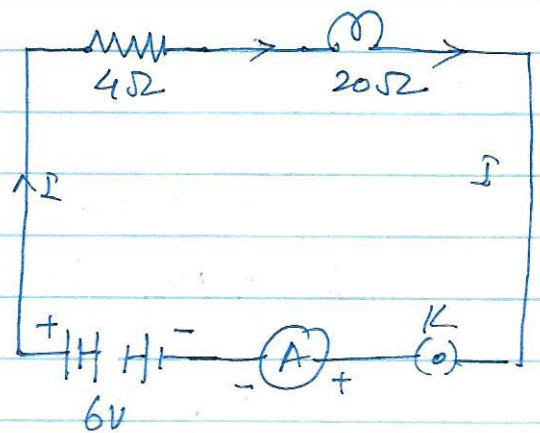 4Ω 20Ω
I I
+ - A K
- +
6V